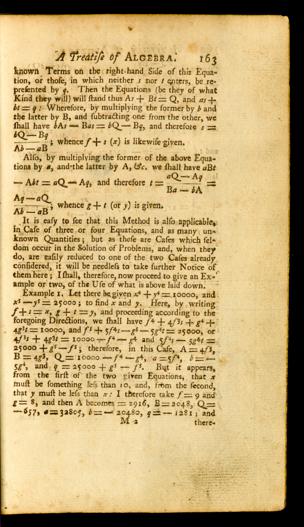 A Treatise of ALGEBRA. 163
known Terms on the right-hand Side of this Equa-
tion, or those, in which neither s nor t enters, be re-
presented by q. Then the Equations (be they of what
Kind they will) will stand thus As + Bt = Q, and as +
bt = q: Wherefore, by multiplying the former by b and
the latter by B, and subtracting one from the other, we
shall have bAs — Bas = bQ — Bq, and therefore s =
bQ — Bq
Ab — aB ; whence f + s (x) is likewise given.
Also, by multiplying the former of the above Equa-
tions by a, and the latter by A, &c. we shall have aBt
— Abt = aQ — Aq, and therefore t = aQ — Aq
Ba — bA =
Aq — aQ
Ab — aB , whence g + t (or y) is given.
It is easy to see that this Method is also applicable,
in Case of three or four Equations, and as many un-
known Quantities; but as these are Cases which sel-
dom occur in the Solution of Problems, and, when they
do, are easily reduced to one of the two Cases already
considered, it will be needless to take further Notice of
them here; I shall, therefore, now proceed to give an Ex-
ample or two, of the Use of what is above laid down.
Example 1. Let there be given x⁴ + y⁴ = 10000, and
x⁵ — y⁵ = 25000; to find x and y. Here, by writing
f + s = x, g + t = y, and proceeding according to the
foregoing Directions, we shall have f⁴ + 4f³s + g⁴ +
4g³t = 10000, and f⁵ + 5f⁴s — g⁵ — 5g⁴t = 25000, or
4f³s + 4g³t = 10000 — f⁴ — g⁴ and 5f⁴s — 5g⁴t =
25000 + g⁵ — f⁵; therefore, in this Case, A = 4f³,
B = 4g³, Q = 10000 — f⁴ — g⁴, a = 5f⁴, b = —
5g⁴, and q = 25000 + g⁵ — f⁵. But it appears,
from the first of the two given Equations, that x
must be something less than 10, and, from the second,
that y must be less than x: I therefore take f = 9 and
g = 8, and then A becomes = 2916, B = 2048, Q =
— 657, a = 32805, b = — 20480, q = — 1281; and
M 2 there-